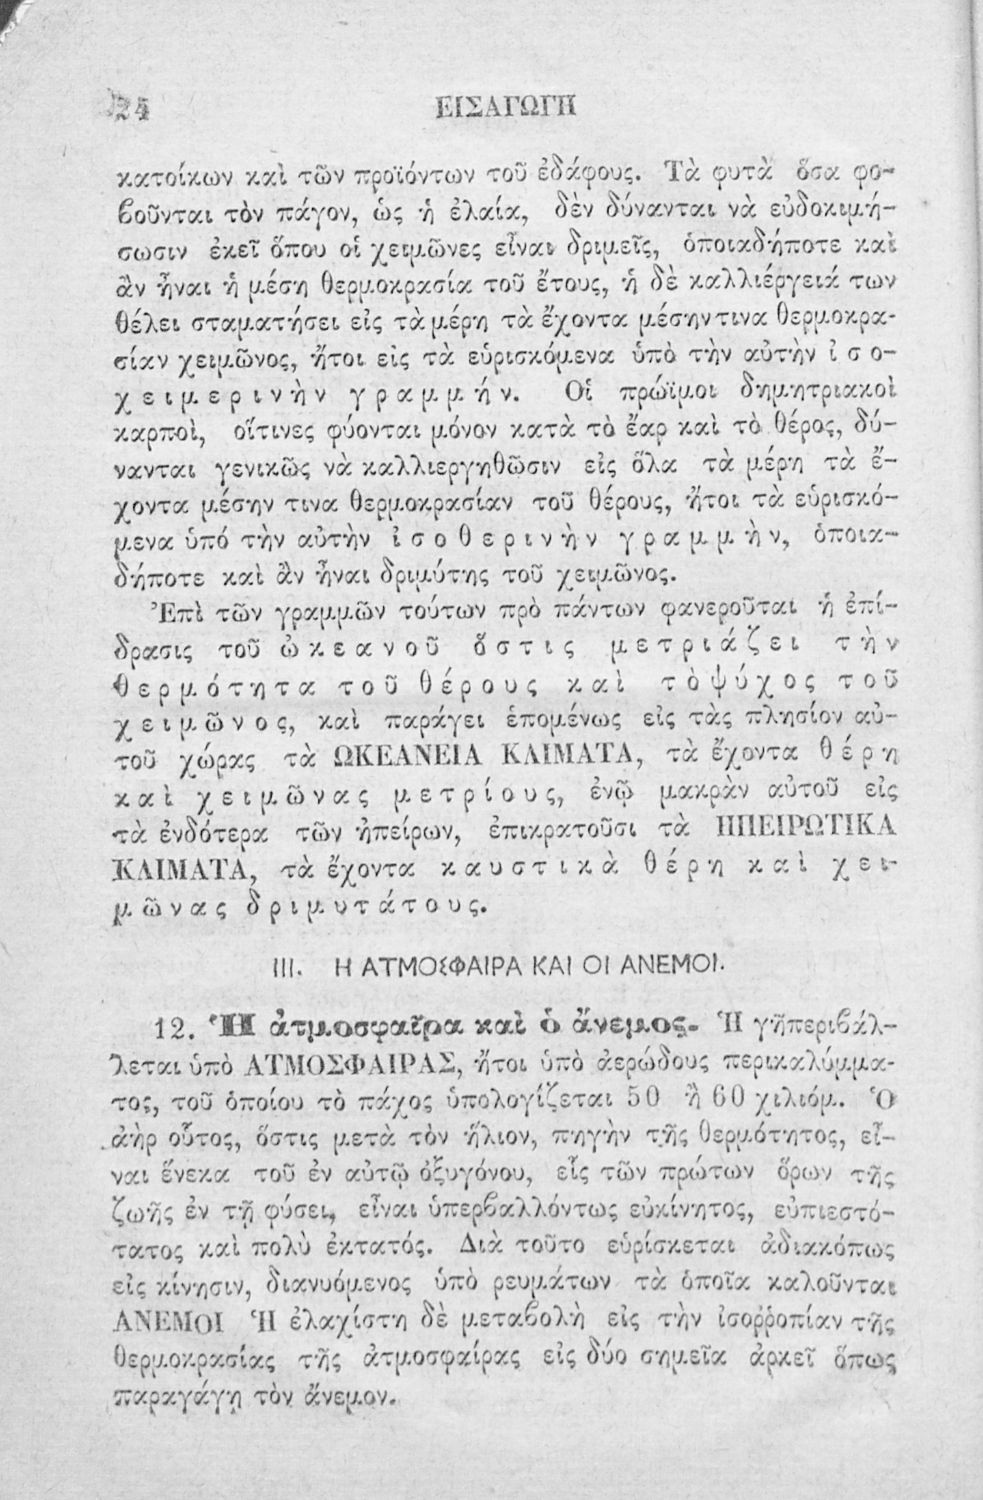 24 ΕΙΣΑΓΩΓΗ
κατοίκων καὶ τῶν προϊόντων τοῦ ἐδάφους. Τὰ φυτὰ ὅσα φο-
βοῦνται τὸν πάγον, ὡς ἡ ἐλαία, δὲν δύνανται νὰ εὐδοκιμή-
σωσιν ἐκεῖ ὅπου οἱ χειμῶνες εἶναι δριμεῖς, ὁποιαδήποτε καὶ
ἂν ἦναι ἡ μέση θερμοκρασία τοῦ ἔτους, ἡ δὲ καλλιέργειά των
θέλει σταματήσει εἰς τὰ μέρη τὰ ἔχοντα μέσην τινα θερμοκρα-
σίαν χειμῶνος, ἤτοι εἰς τὰ εὑρισκόμενα ὑπὸ τὴν αὐτὴν ἰσο-
χειμερινὴν γραμμήν. Οἱ πρώϊμοι δημητριακοὶ
καρποὶ, οἵτινες φύονται μόνον κατὰ τὸ ἔαρ καὶ τὸ θέρος, δύ-
νανται γενικῶς νὰ καλλιεργηθῶσιν εἰς ὅλα τὰ μέρη τὰ ἔ-
χοντα μέσην τινα θερμοκρασίαν τοῦ θέρους, ἤτοι τὰ εὑρισκό-
μενα ὑπό τὴν αὐτὴν ἰσοθερινὴν γραμμὴν, ὁποια-
δήποτε καὶ ἂν ἦναι δριμύτης τοῦ χειμῶνος.
Ἐπὶ τῶν γραμμῶν τούτων πρὸ πάντων φανεροῦται ἡ ἐπί-
δρασις τοῦ ὠκεανοῦ ὅστις μετριάζει τὴν
θερμότητα τοῦ θέρους καὶ τὸ ψύχος τοῦ
χειμῶνος, καὶ παράγει ἑπομένως εἰς τὰς πλησίον αὐ-
τοῦ χώρας τὰ ΩΚΕΑΝΕΙΑ ΚΛΙΜΑΤΑ, τὰ ἔχοντα θέρη
καὶ χειμῶνας μετρίους, ἐνῷ μακρὰν αὐτοῦ εἰς
τὰ ἐνδότερα τῶν ἠπείρων, ἐπικρατοῦσι τὰ ΗΠΕΙΡΩΤΙΚΑ
ΚΛΙΜΑΤΑ, τὰ ἔχοντα καυστικὰ θέρη καὶ χει-
μῶνας δριμυτάτους.
III. Η ΑΤΜΟΣΦΑΙΡΑ ΚΑΙ ΟΙ ΑΝΕΜΟΙ.
12. Ἡ ἀτμοσφαῖρα καὶ ὁ ἄνεμος. Ἡ γῆ περιβάλ-
λεται ὑπὸ ΑΤΜΟΣΦΑΙΡΑΣ, ἤτοι ὑπὸ ἀερώδους περικαλύμμα-
τος, τοῦ ὁποίου τὸ πάχος ὑπολογίζεται 50 ἢ 60 χιλιόμ. Ὁ
ἀὴρ οὗτος, ὅστις μετὰ τὸν ἥλιον, πηγὴν τῆς θερμότητος, εἶ-
ναι ἕνεκα τοῦ ἐν αὐτῷ ὀξυγόνου, εἷς τῶν πρώτων ὅρων τῆς
ζωῆς ἐν τῇ φύσει, εἶναι ὑπερβαλλόντως εὐκίνητος, εὐπιεστό-
τατος καὶ πολὺ ἐκτατός. Διὰ τοῦτο εὑρίσκεται ἀδιακόπως
εἰς κίνησιν, διανυόμενος ὑπὸ ρευμάτων τὰ ὁποῖα καλοῦνται
ΑΝΕΜΟΙ Ἡ ἐλαχίστη δὲ μεταβολὴ εἰς τὴν ἰσοῤῥοπίαν τῆς
θερμοκρασίας τῆς ἀτμοσφαίρας εἰς δύο σημεῖα ἀρκεῖ ὅπως
παραγάγῃ τὸν ἄνεμον.